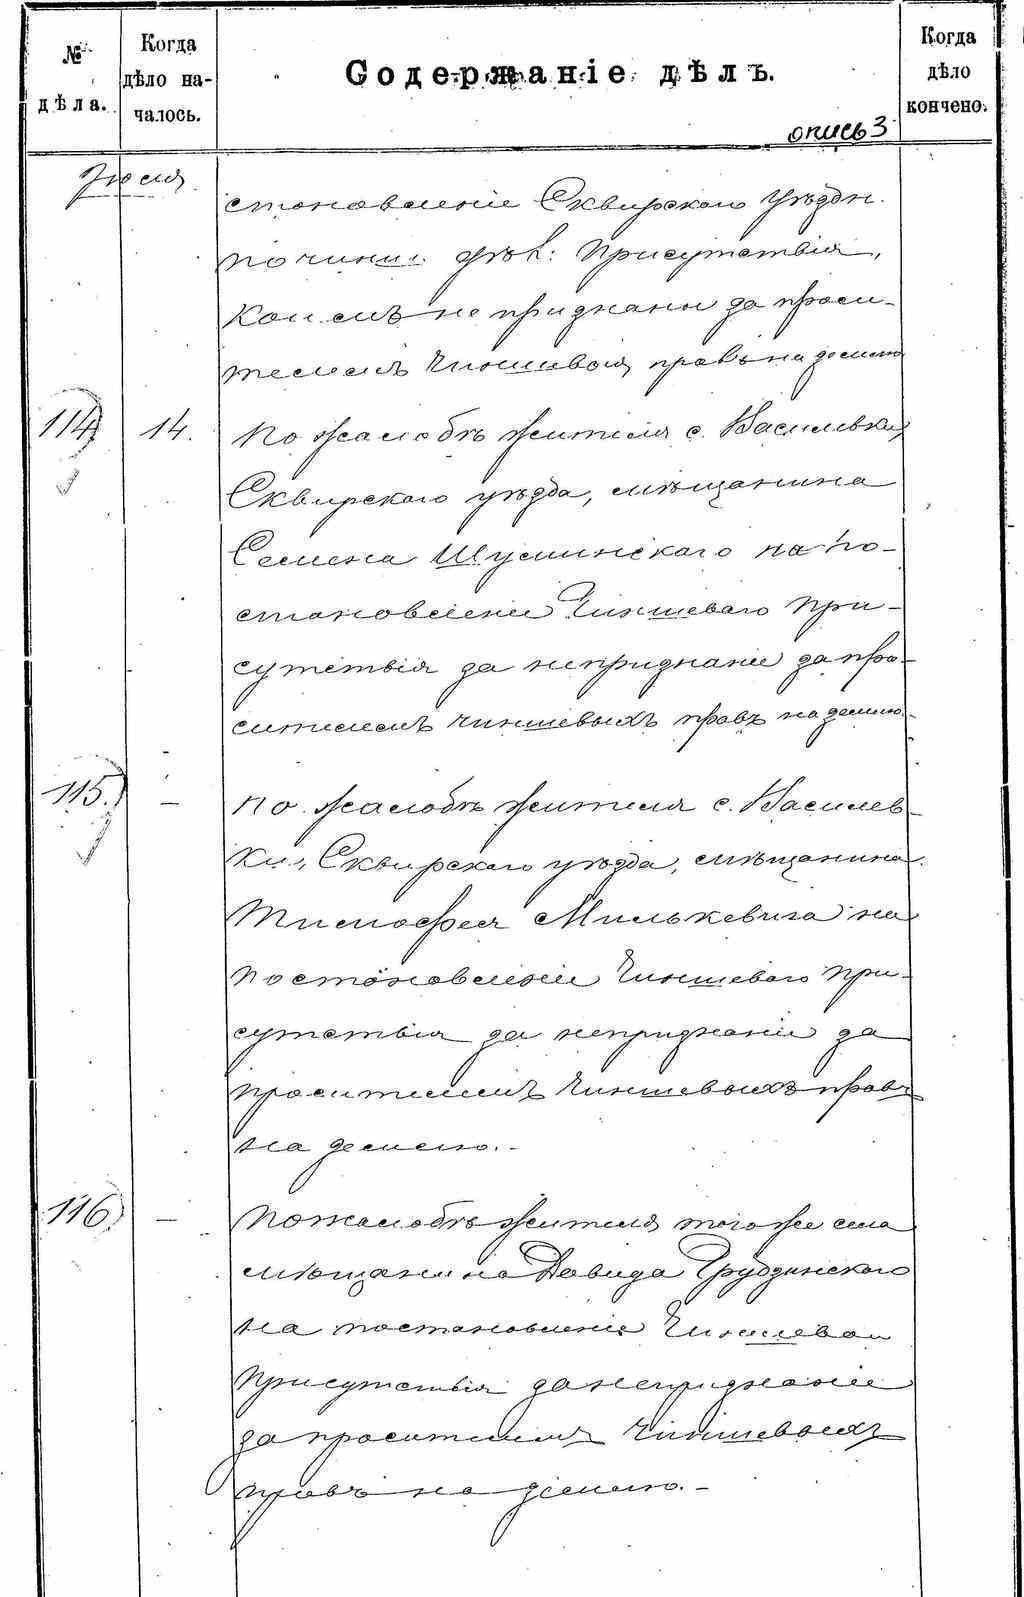 № дѣла.
Когда дѣло началось.
Содержаніе дѣлъ.
Когда дѣло кончено.
опись 3
Іюля
становленіе Сквирскаго Уѣздн.
по чинш. дѣл: Присутствія,
коимъ не признаны за проси-
телемъ чиншевыя права на землю
114 14. По жалобѣ жителя с. Василевки,
Сквирскаго уѣзда, мѣщанина
Семена Шуминскаго на по-
становленіе Чиншеваго При-
сутствія за непризнаніе за про-
сителемъ чиншевыхъ правъ на землю.
115. — По жалобѣ жителя с. Василев-
ки, Сквирскаго уѣзда, мѣщанина
Тимофея Милькевича на
постановленіе Чиншеваго При-
сутствія за непризнаніе за
просителемъ чиншевыхъ правъ
на землю. -
116. — По жалобѣ жителя того же села
мѣщанина Давида Грудзинскаго
на постановленіе Чиншеваго
Присутствія за непризнаніе
за просителемъ чиншевыхъ
правъ на землю. -